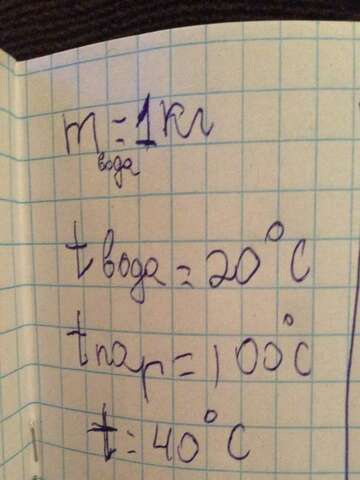 m вода = 1 кг
t вода = 20°C
t пар = 100°C
t = 40°C